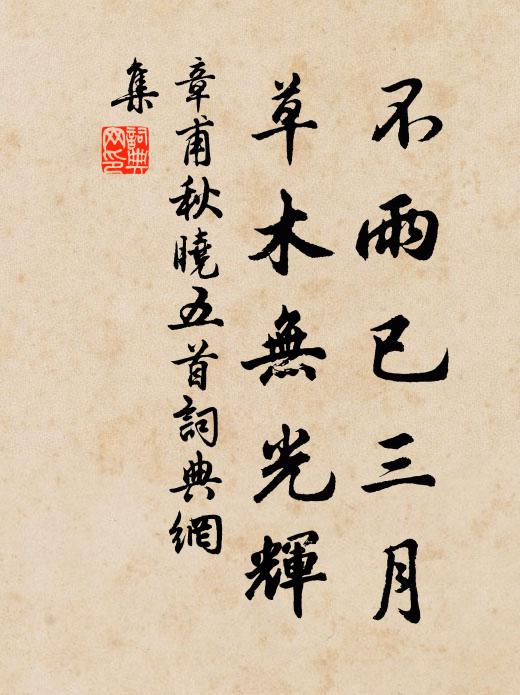 不雨已三月
草木無光輝
章甫秋曉五首詞典網
集
詞典
网印